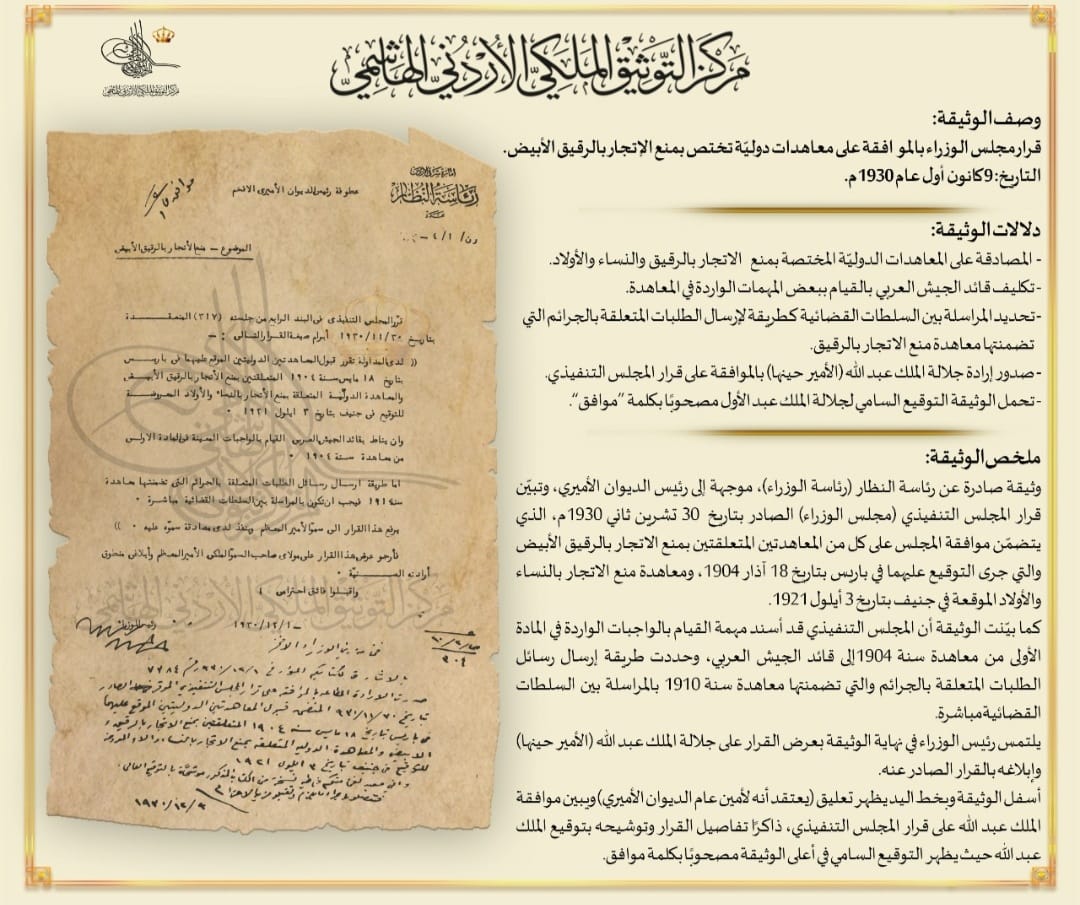 مركز التوثيق الملكي الأردني الهاشمي
مركز التوثيق الملكي الأردني الهاشمي
وصف الوثيقة:
قرار مجلس الوزراء بالموافقة على معاهدات دوليّة تختص بمنع الإتجار بالرقيق الأبيض.
التاريخ: 9 كانون أول عام 1930م.
دلالات الوثيقة:
- المصادقة على المعاهدات الدوليّة المختصة بمنع الاتجار بالرقيق والنساء والأولاد.
- تكليف قائد الجيش العربي بالقيام ببعض المهمات الواردة في المعاهدة.
- تحديد المراسلة بين السلطات القضائية كطريقة لإرسال الطلبات المتعلقة بالجرائم التي
تضمنتها معاهدة منع الاتجار بالرقيق.
- صدور إرادة جلالة الملك عبد الله (الأمير حينها) بالموافقة على قرار المجلس التنفيذي.
- تحمل الوثيقة التوقيع السامي لجلالة الملك عبد الأول مصحوبًا بكلمة "موافق".
ملخص الوثيقة:
وثيقة صادرة عن رئاسة النظار (رئاسة الوزراء)، موجهة إلى رئيس الديوان الأميري، وتبيّن
قرار المجلس التنفيذي (مجلس الوزراء) الصادر بتاريخ 30 تشرين ثاني 1930م، الذي
يتضمّن موافقة المجلس على كل من المعاهدتين المتعلقتين بمنع الاتجار بالرقيق الأبيض
والتي جرى التوقيع عليهما في باريس بتاريخ 18 آذار 1904، ومعاهدة منع الاتجار بالنساء
والأولاد الموقعة في جنيف بتاريخ 3 أيلول 1921.
كما بيّنت الوثيقة أن المجلس التنفيذي قد أسند مهمة القيام بالواجبات الواردة في المادة
الأولى من معاهدة سنة 1904 إلى قائد الجيش العربي، وحددت طريقة إرسال رسائل
الطلبات المتعلقة بالجرائم والتي تضمنتها معاهدة سنة 1910 بالمراسلة بين السلطات
القضائية مباشرة.
يلتمس رئيس الوزراء في نهاية الوثيقة بعرض القرار على جلالة الملك عبد الله (الأمير حينها)
وإبلاغه بالقرار الصادر عنه.
أسفل الوثيقة وبخط اليد يظهر تعليق (يعتقد أنه لأمين عام الديوان الأميري) ويبين موافقة
الملك عبد الله على قرار المجلس التنفيذي، ذاكرًا تفاصيل القرار وتوشيحه بتوقيع الملك
عبد الله حيث يظهر التوقيع السامي في أعلى الوثيقة مصحوبًا بكلمة موافق.
رئاسة النظار
عطوفة رئيس الديوان الأميري الافخم
الموضوع - منع الأتجار بالرقيق الأبيض
قرر المجلس التنفيذي في البند الرابع من جلسته (٣١٧) المنعقدة
بتاريخ ١٩٣٠/١١/٣٠ ابرام صيغة القرار التالي :-
(( لدى المداولة تقرر قبول المعاهدتين الدوليتين الموقع عليهما في باريس
بتاريخ ١٨ مايس سنة ١٩٠٤ المتعلقتين بمنع الأتجار بالرقيق الأبيض
والمعاهدة الدوليّة المتعلقة بمنع الأتجار بالنساء والأولاد المعروضة
للتوقيع في جنيف بتاريخ ٣ ايلول ١٩٢١ ٠
وان يناط بقائد الجيش العربي القيام بالواجبات المعينة في المادة الاولى
من معاهدة سنة ١٩٠٤ ٠
اما طريقة ارسال رسائل الطلبات المتعلقة بالجرائم التي تضمنتها معاهدة
سنة ١٩١٠ فيجب ان تكون بالمراسلة بين السلطات القضائية مباشرة ٠
يرفع هذا القرار الى سمو الأمير المعظم وينفذ لدى مصادقة سموه عليه ٠ ))
فأرجو عرض هذا القرار على مولاي صاحب السمو الملكي الأمير المعظم وأبلاغي منطوق
أرادته السنيّة ٠
واقبلوا فائق احترامي ٠
١٩٣٠/١٢/١- رئيس الوزراء
مركز التوثيق الملكي الأردني الهاشمي